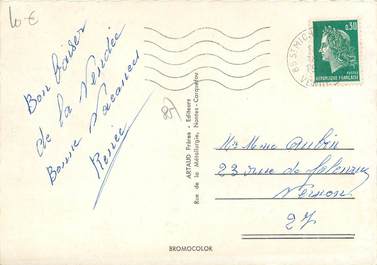 10€
Bon baiser
de la Vendée
Bonne Vacances
Renée
85
ARTAUD Frères - Editeurs
Rue de la Métallurgie, Nantes-Carquefou
BROMOCOLOR
0,30
POSTES
REPUBLIQUE FRANÇAISE
85 ST MIC
Mr Mme Aubin
23 rue de
Vernon
27